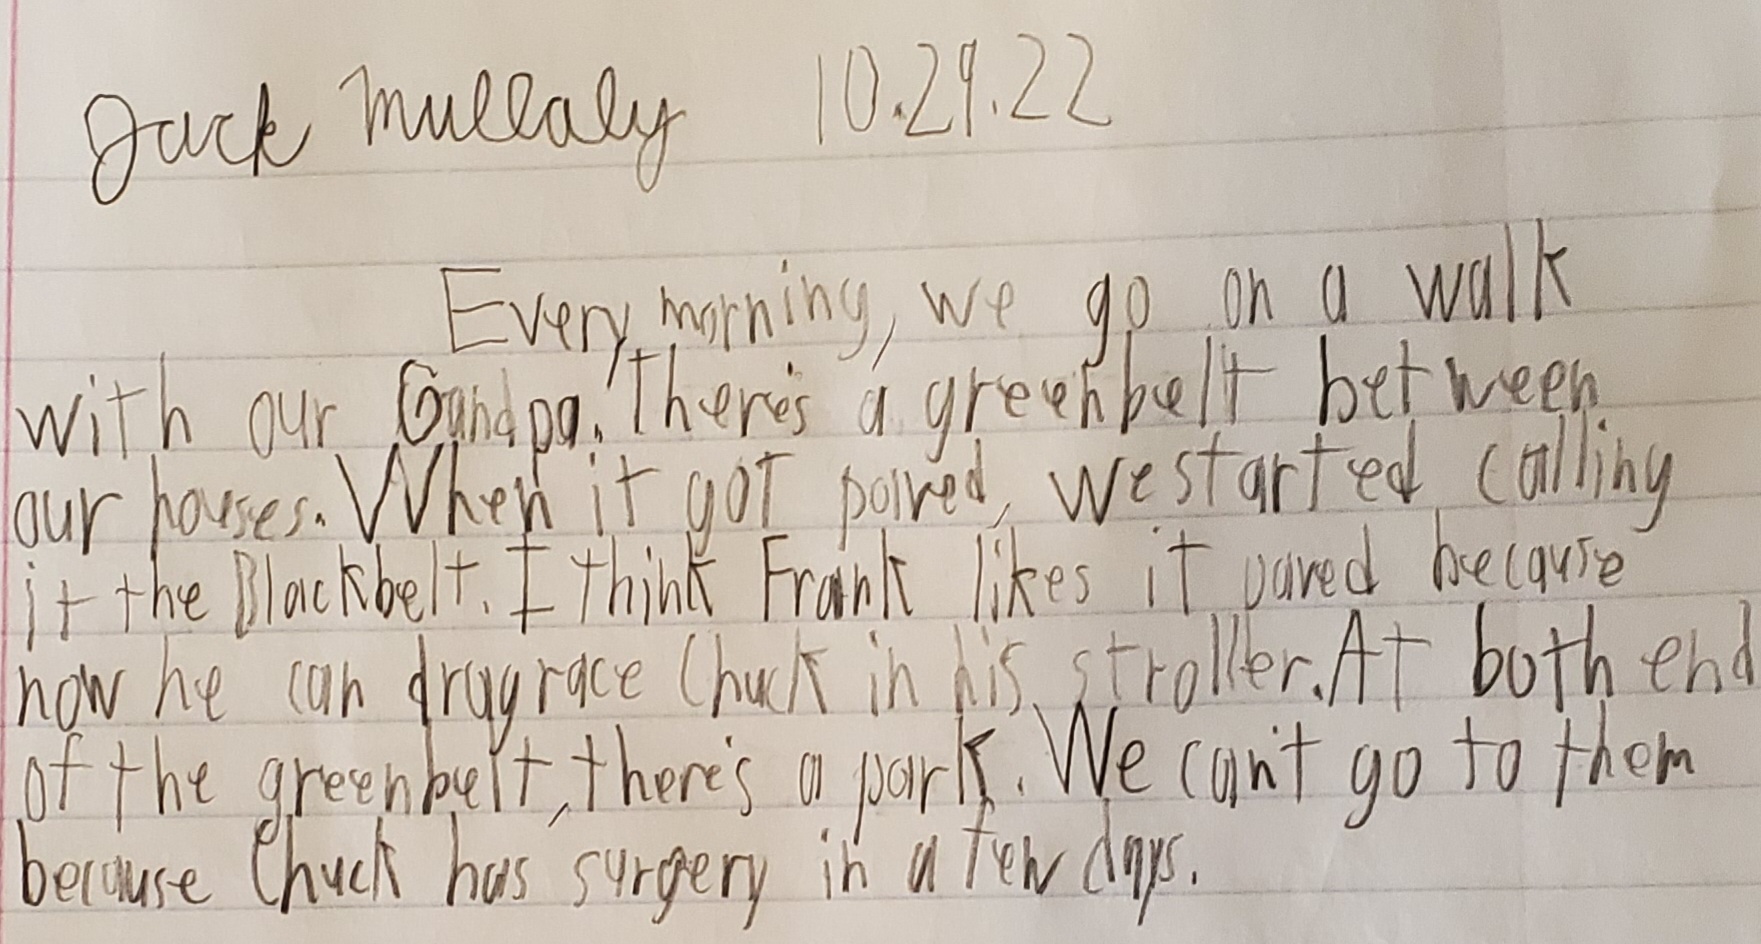 Jack Mullaly 10.29.22
Every morning, we go on a walk
with our Gandpa. There's a greenbelt between
our houses. When it got paived, we started calling
it the Blackbelt. I think Frank likes it paved because
now he can drag race Chuck in his stroller. At both end
of the greenbelt, there's a park. We can't go to them
because Chuck has surgery in a few days.